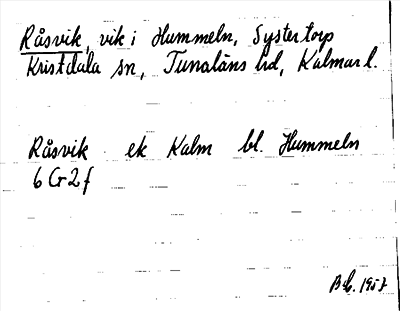 Råsvik, vik i Hummeln, Systertorp
Kristdala sn, Tunaläns hd, Kalmar l.
Råsvik ek Kalm bl. Hummeln
6 G 2 f
1957